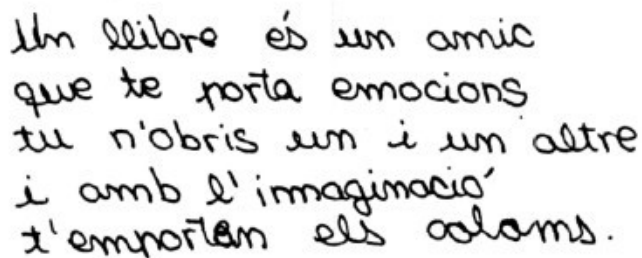 Un llibre és un amic
que te porta emocions
tu n'obris un i un altre
i amb l'immaginació
t'emportan els coloms.